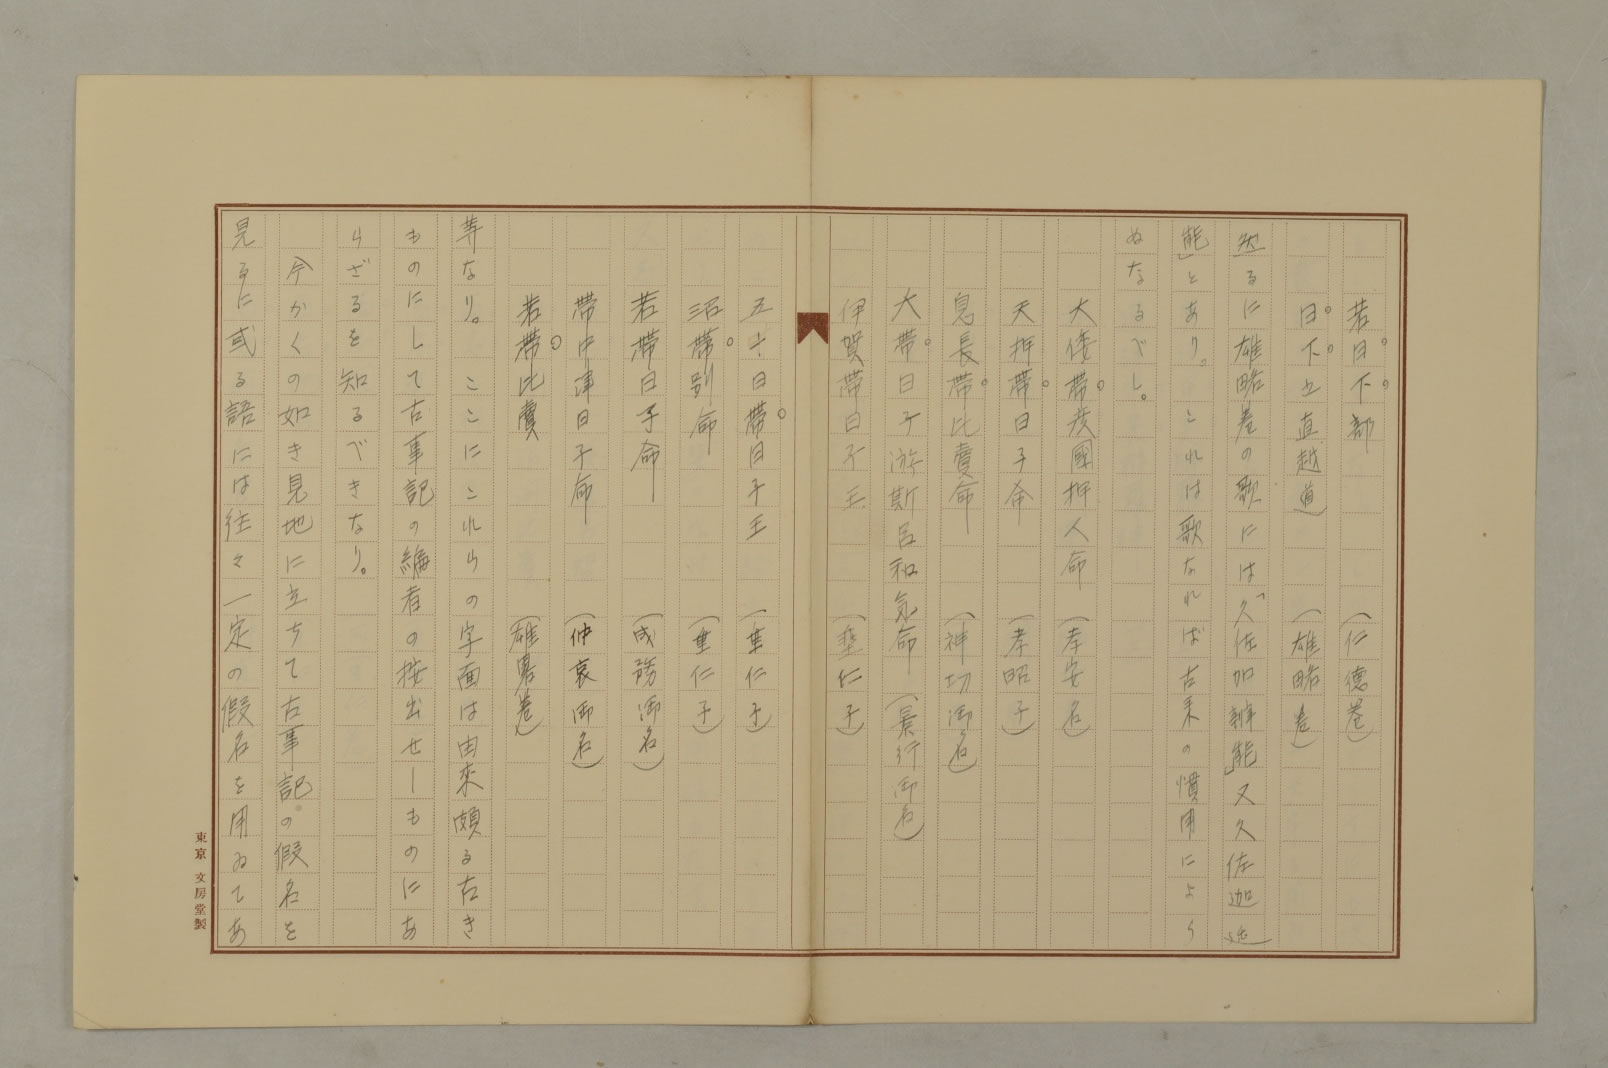 若日下部　（仁德卷）
日下之直越道（雄略卷）
然るに雄略卷の歌には「久佐加辨能」又久佐迦延
能」とあり。これは歌なれば古来の慣用によら
ぬなるべし。
大倭帶彦國押人命（孝安名）
天押帶日子命（孝昭子）
息長帶比賣命（神功御名）
大帶日子淤斯呂和氣命（景行御名）
伊賀帶日子王（垂仁子）
五十日帶日子王（垂仁子）
沼帶別命（垂仁子）
若帶日子命（成務御名）
帶中津日子命（仲哀御名）
若帶比賣（雄畧卷）
等なり。ここにこれらの字面は由來頗る古き
ものにして古事記の編者の按出せしものにあ
らざるを知るべきなり。
今かくの如き見地に立ちて古事記の假名を
見るに或る語には往々一定の假名を用ゐてあ
東京 文房堂製